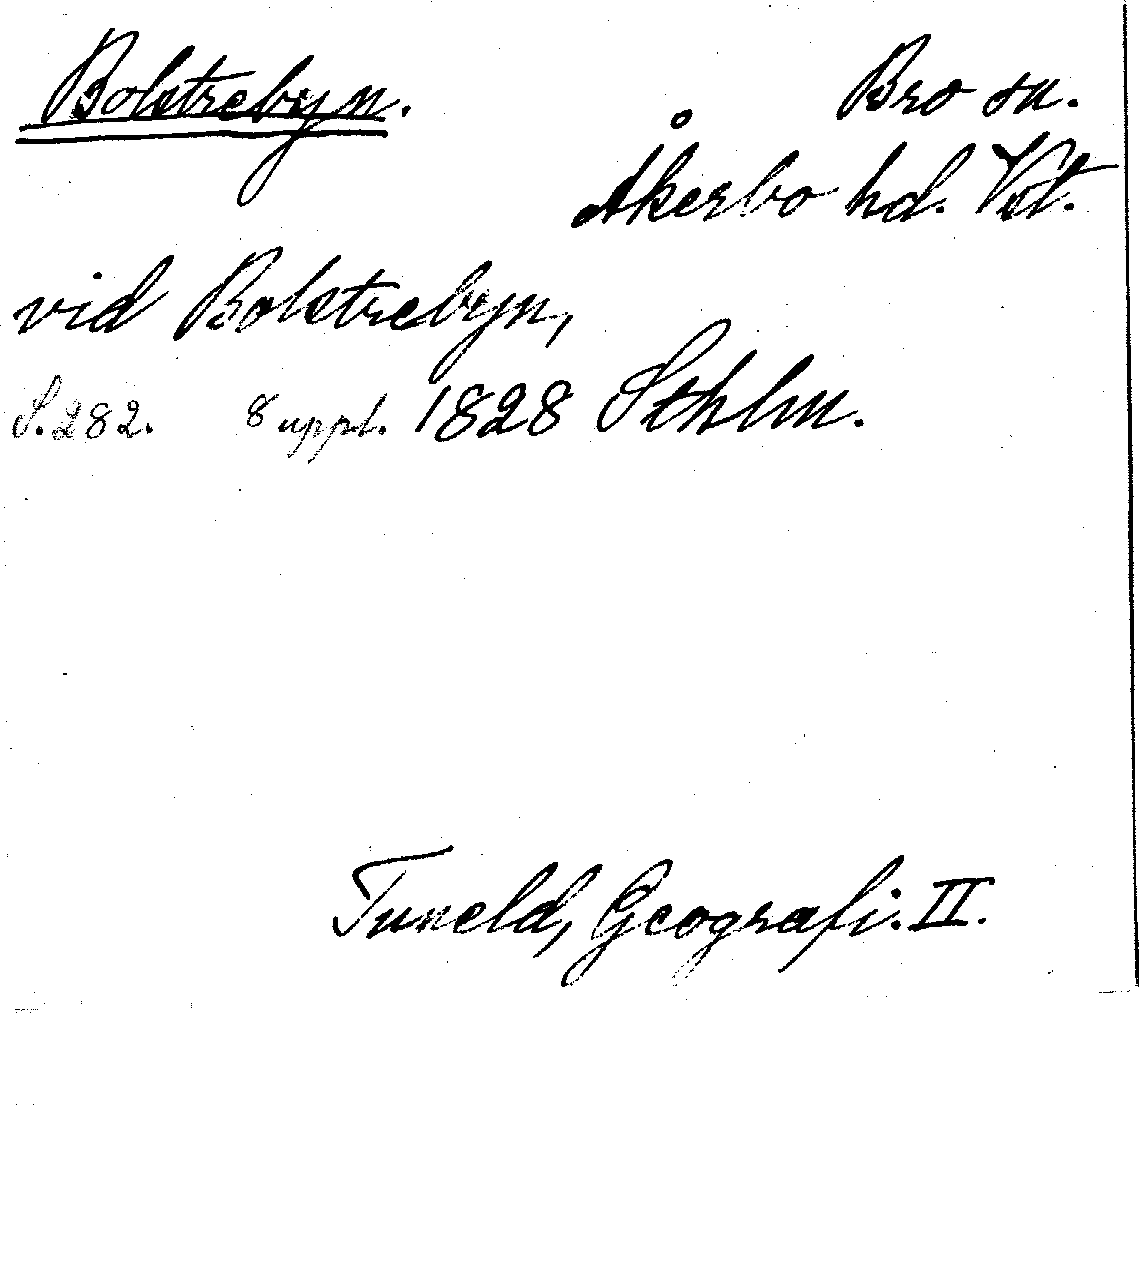 Bolstrebyn.
Bro sn.
Åkerbo hd. Vst.
vid Bolstrebyn,
S. 282. 8 uppl. 1828 Sthlm.
Tuneld, Geografi. II.